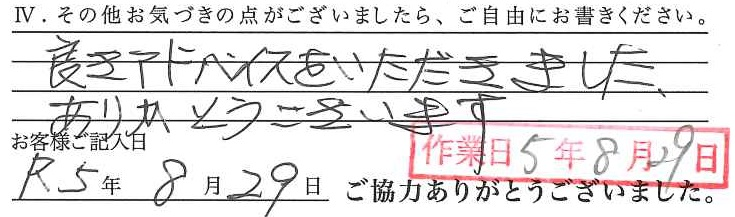 Ⅳ．その他お気づきの点がございましたら、ご自由にお書きください。
良きアドバイスをいただきました、
ありがとうございます
お客様ご記入日
作業日 5年8月29日
R5年 8月29日 ご協力ありがとうございました。